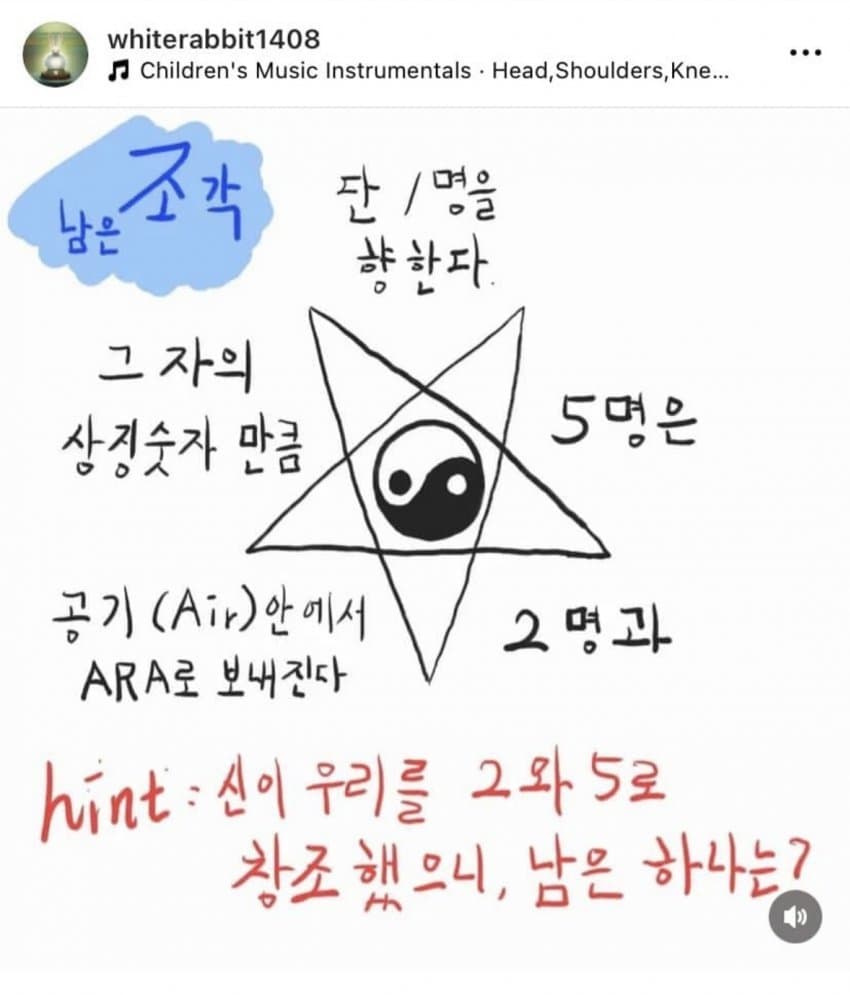 whiterabbit1408
Children's Music Instrumentals · Head,Shoulders,Kne...
남은 조각
단 1명을
향한다.
그 자의
상징숫자 만큼
5명은
공기 (Air)안에서
ARA로 보내진다
2명과
hint : 신이 우리를 2와 5로
창조했으니, 남은 하나는?